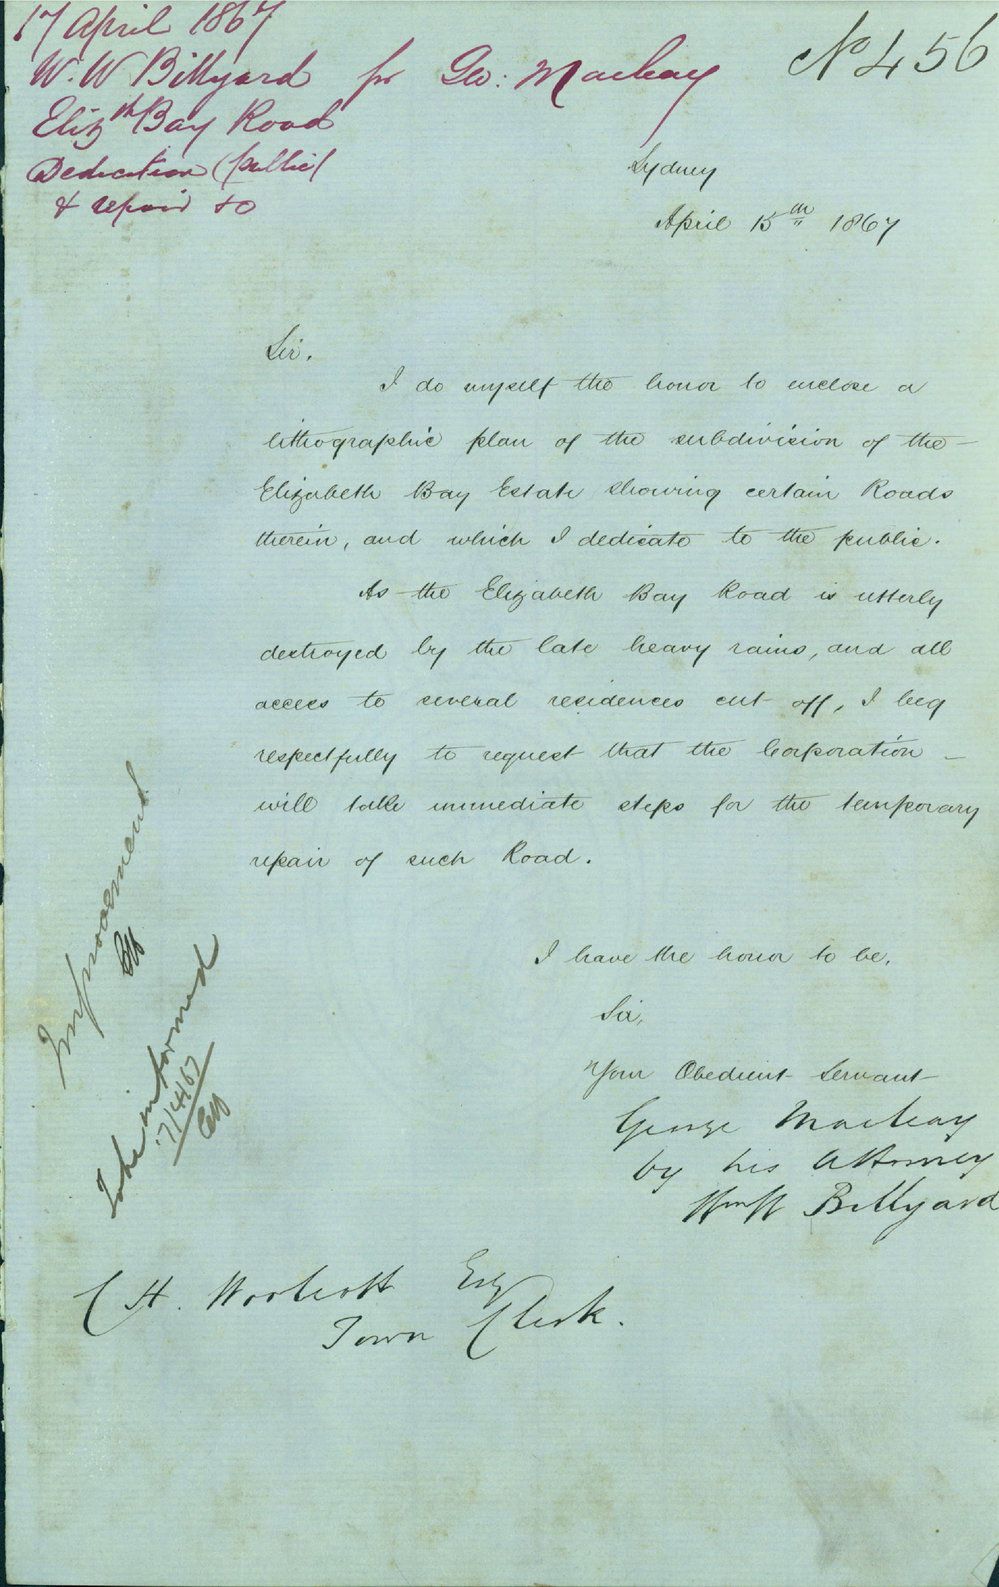 17 April 1867
W. W Billyard for Geo: Macleay
No 456
Elizth Bay Road
Dedication (public)
& repair to
Sydney
April 15th 1867
Sir.
I do myself the honor to enclose a
lithographic plan of the subdivision of the
Elizabeth Bay Estate showing certain Roads
therein, and which I dedicate to the public.
As the Elizabeth Bay Road is utterly
destroyed by the late heavy rains, and all
access to several residences cut off, I beg
respectfully to request that the Corporation
will take immediate steps for the temporary
repair of such Road.
I have the honor to be,
Sir,
Your Obedient Servant
George Macleay
by his Attorney
Billyard
Improvement
To be informed
17/4/67
C H. Woolcott Esq
Town Clerk.